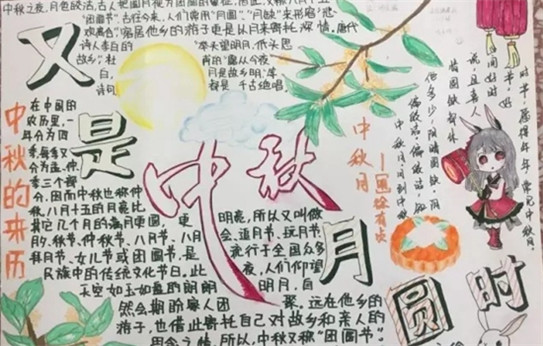 中秋之夜,月色皎洁,古人把圆月视为团圆的象征,
“团圆节”。古往今来,人们常用“月圆”、“月缺”来形容“悲
欢离合”,客居他乡的游子更是以月来寄托深情。唐代
诗人李白的
“举头望明月,低头思
故乡”,杜
甫的“露从今夜
白,
月是故乡明”等
诗句
都是千古绝唱。
又是中秋月圆时
中秋的来历
在中国的
农历里,一
年分为四
季,每季又
分为孟、仲、
季三个部
分,因而中秋也称仲
秋。八月十五的月亮比
其它几个月的满月更圆,更
明亮,所以又叫做
月夕,秋节,仲秋节、八月节、八月
会、追月节、玩月节
拜月节、女儿节或团圆节,是
流行于全国众多
民族中的传统文化节日。此
夜,人们仰望
天空如玉如盘的朗朗
明月,自
然会期盼家人团
聚。远在他乡的
游子,也借此寄托自己对故乡和亲人的
思念之情。所以,中秋又称“团圆节”。
中秋月
中秋月。月到中秋
偏皎洁。偏皎洁,知
他多少,阴晴圆缺。阴
晴圆缺都休
说,且喜人
间好时
节。好
时节,愿得年年,常见中秋月。